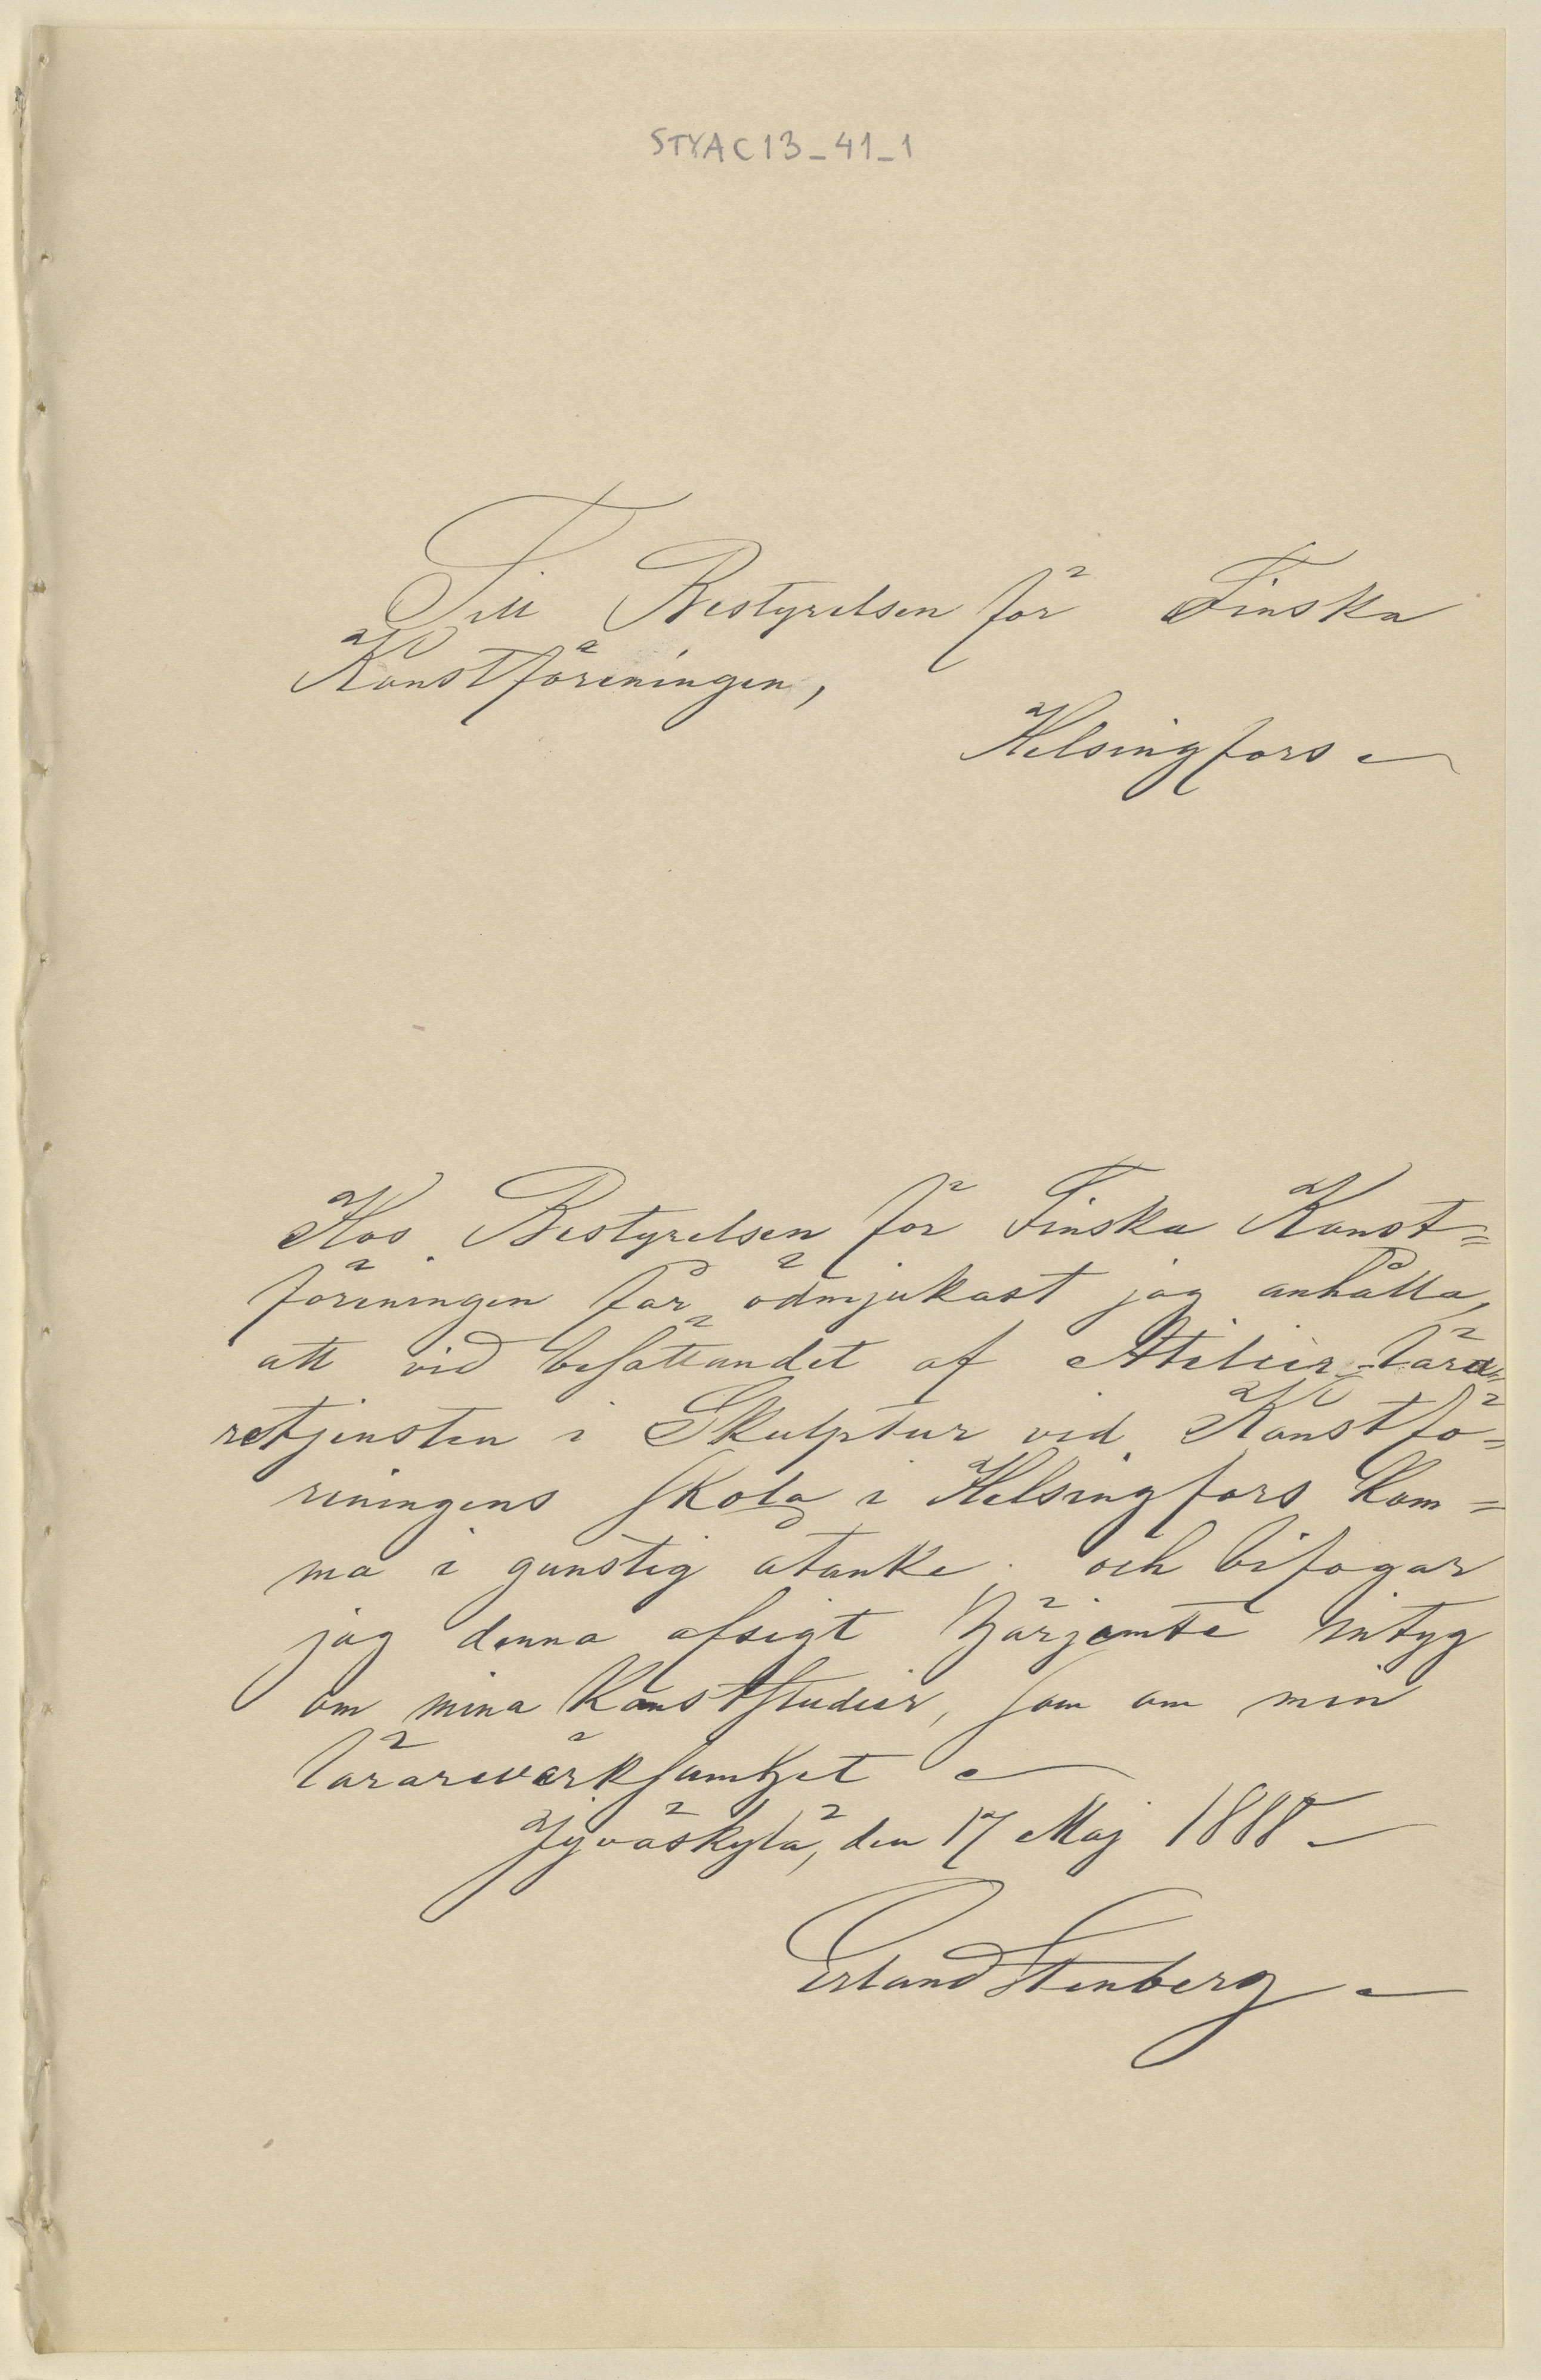 STYAC13_41_1
Till Bestyrelsen för Finska
Konstföreningen,
Helsingfors
Hos Bestyrelsen för Finska Konst=
föreningen får ödmjukast jag anhålla,
att vid besättandet af Atelier-lära=
retjensten i Skulptur vid Konstfö=
reningens skola i Helsingfors kom=
ma i gunstig åtanke. och bifogar
jag denna afsigt härjemte intyg
om mina Konststudier, som om min
lärarevärksamhet
Jyväskylä, den 17 Maj 1888
Erland Stenberg